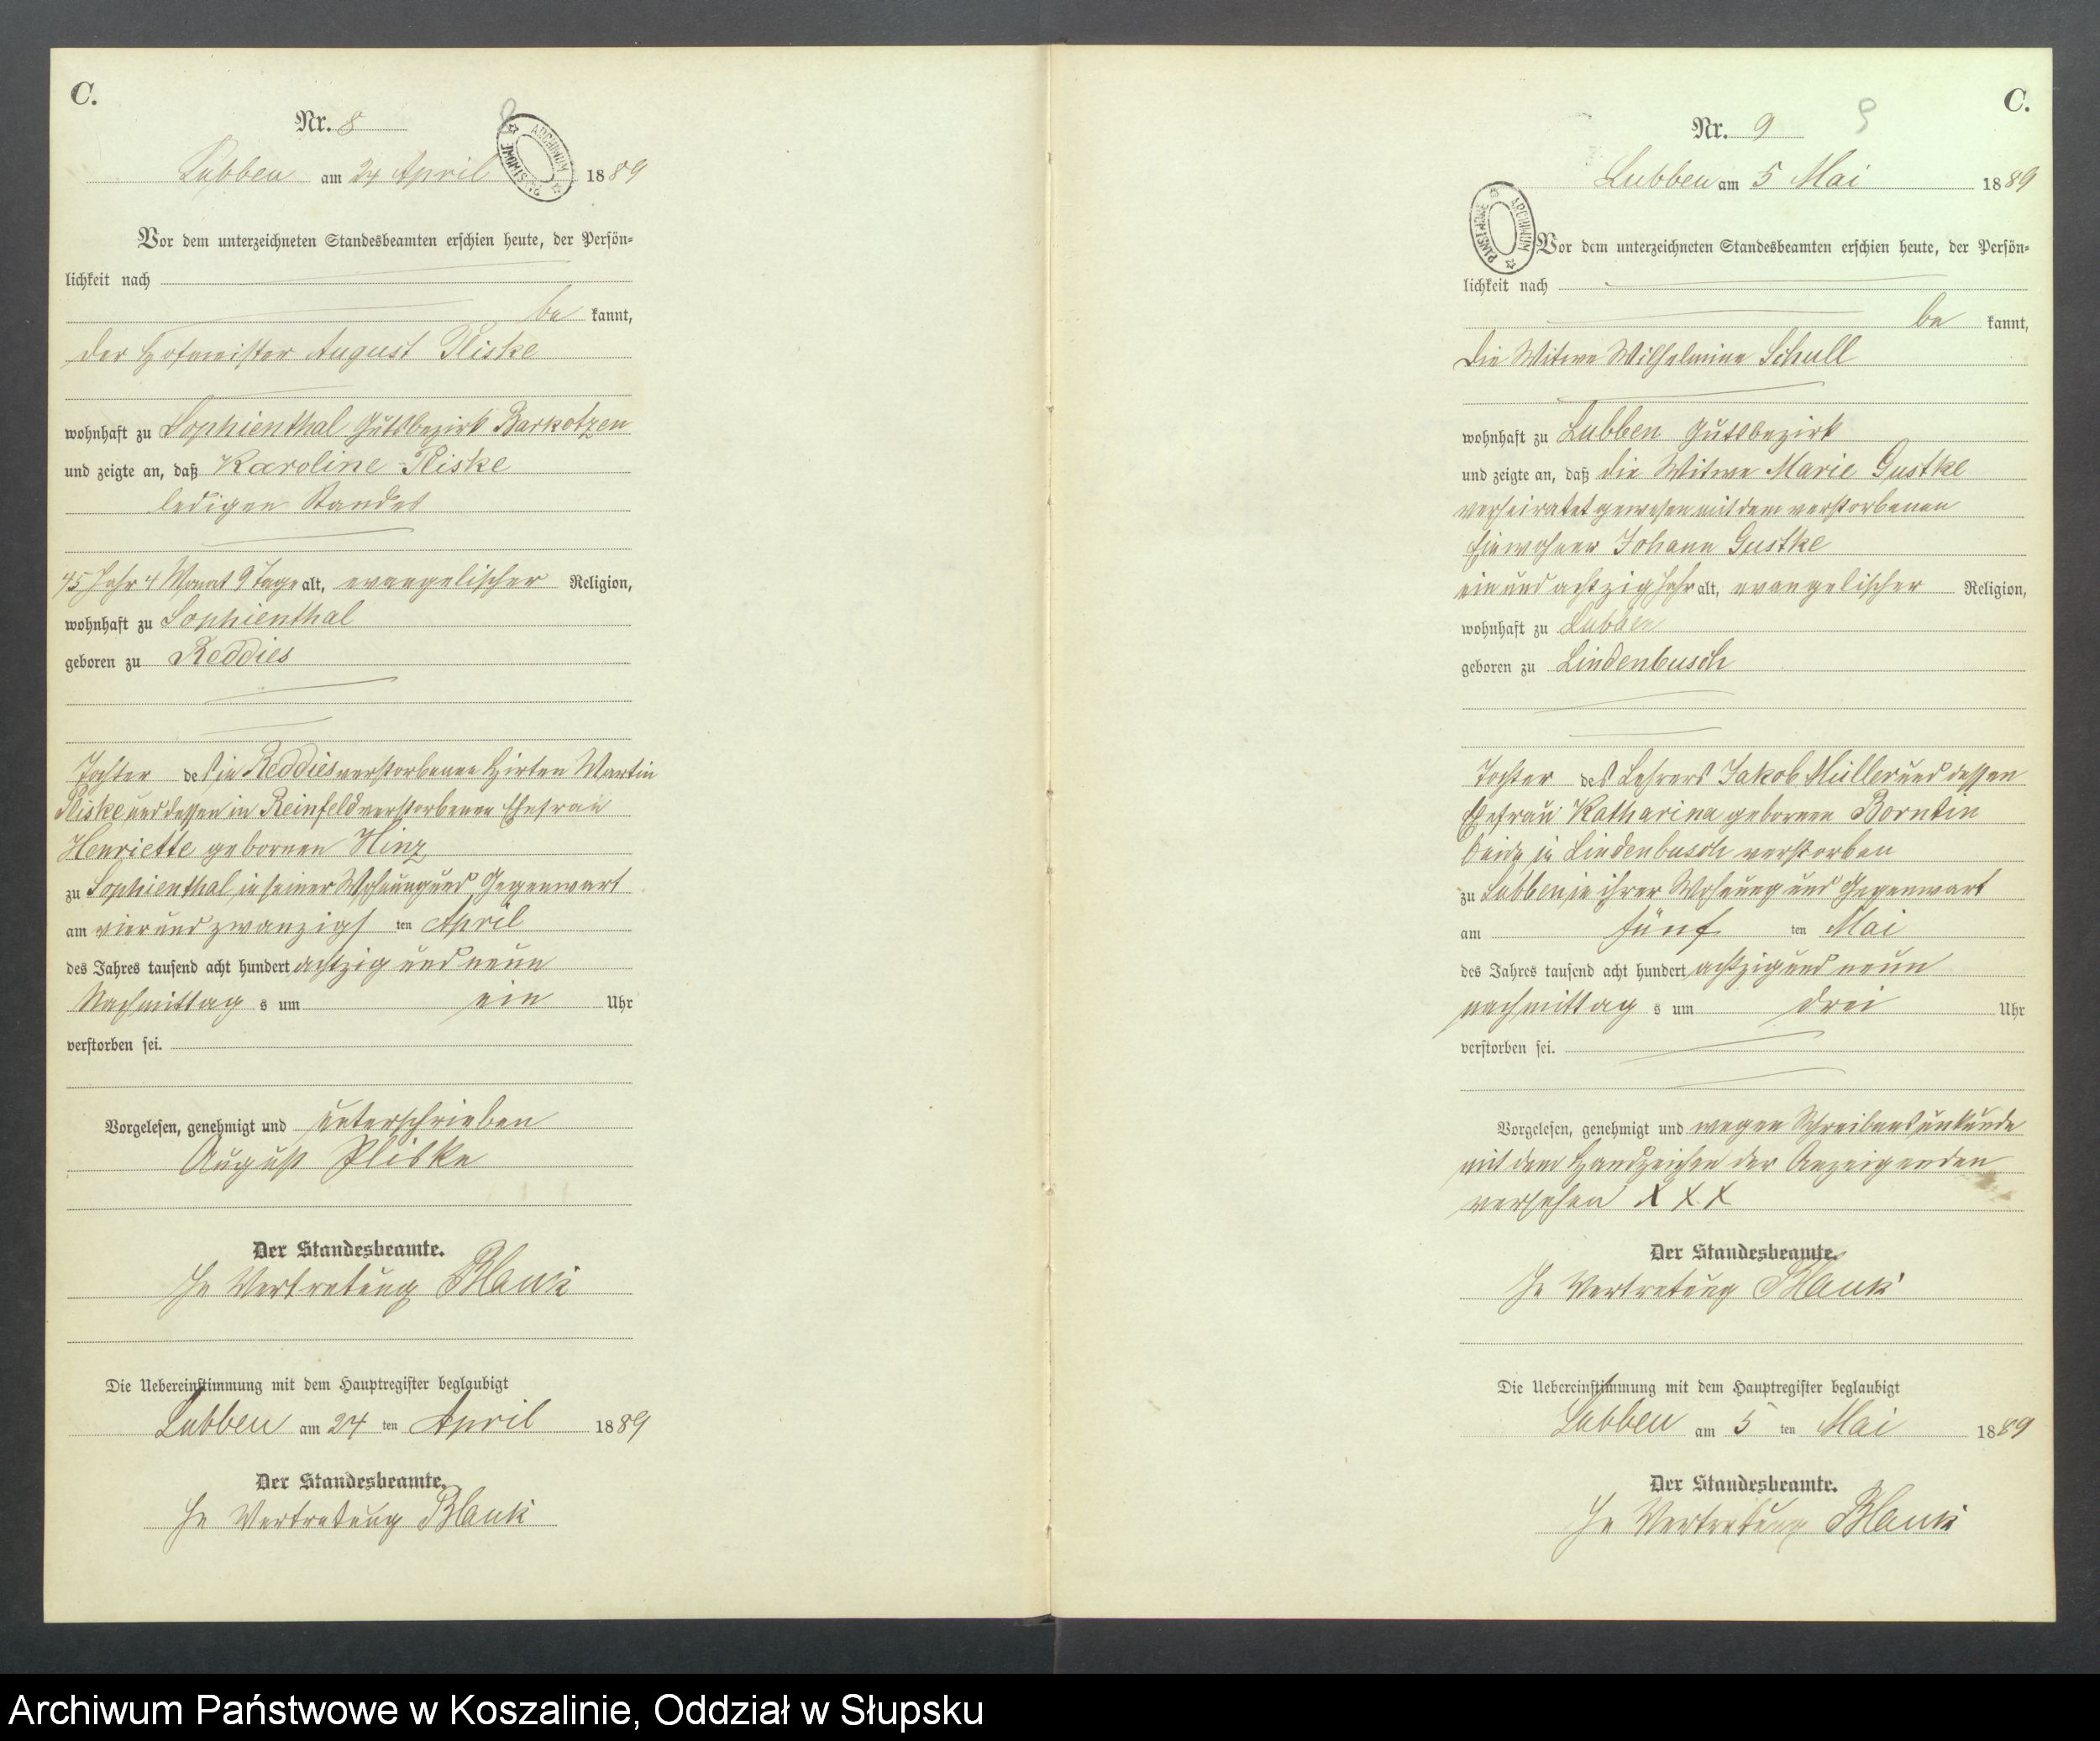 C.
Nr. 8
8
ARCHIWUM PAŃSTWOWE
Lubben am 24 April 1889
Vor dem unterzeichneten Standesbeamten erschien heute, der Persön-
lichkeit nach
be kannt,
der Hofmeister August Pliske
wohnhaft zu Sophienthal Gutsbezirk Barkotzen
und zeigte an, daß Karoline Pliske
ledigen Standes
45 Jahr 4 Monat 9 Tage alt, evangelischer Religion,
wohnhaft zu Sophienthal
geboren zu Reddies
Tochter des in Reddies verstorbenen Hirten Martin
Pliske und dessen in Reinfeld verstorbenen Ehefrau
Henriette gebornen Hinz
zu Sophienthal in seiner Wohnung und Gegenwart
am vier und zwanzigs ten April
des Jahres tausend acht hundert achtzig und neun
Nachmittag s um ein Uhr
verstorben sei.
Vorgelesen, genehmigt und unterschrieben
August Pliske
Der Standesbeamte.
In Vertretung Blank
Die Uebereinstimmung mit dem Hauptregister beglaubigt
Lubben am 24 ten April 1889
Der Standesbeamte.
In Vertretung Blank
C.
Nr. 9
9
Lubben am 5 Mai 1889
ARCHIWUM PAŃSTWOWE
Vor dem unterzeichneten Standesbeamten erschien heute, der Persön-
lichkeit nach
be kannt,
die Witwe Wilhelmine Schull
wohnhaft zu Lubben Gutsbezirk
und zeigte an, daß die Witwe Marie Gustke
verheiratet gewesen mit dem verstorbenen
Einwohner Johann Gustke
ein und achtzig Jahr alt, evangelischer Religion,
wohnhaft zu Lubben
geboren zu Lindenbusch
Tochter des Lehrers Jakob Müller und dessen
Ehefrau Katharina gebornen Borntin
beide in Lindenbusch verstorben
zu Lubben in ihrer Wohnung und Gegenwart
am fünf ten Mai
des Jahres tausend acht hundert achtzig und neun
nachmittag s um drei Uhr
verstorben sei.
Vorgelesen, genehmigt und wegen Schreibensunkunde
mit dem Handzeichen der Anzeigenden
versehen X X X
Der Standesbeamte.
In Vertretung Blank
Die Uebereinstimmung mit dem Hauptregister beglaubigt
Lubben am 5 ten Mai 1889
Der Standesbeamte.
In Vertretung Blank
Archiwum Państwowe w Koszalinie, Oddział w Słupsku